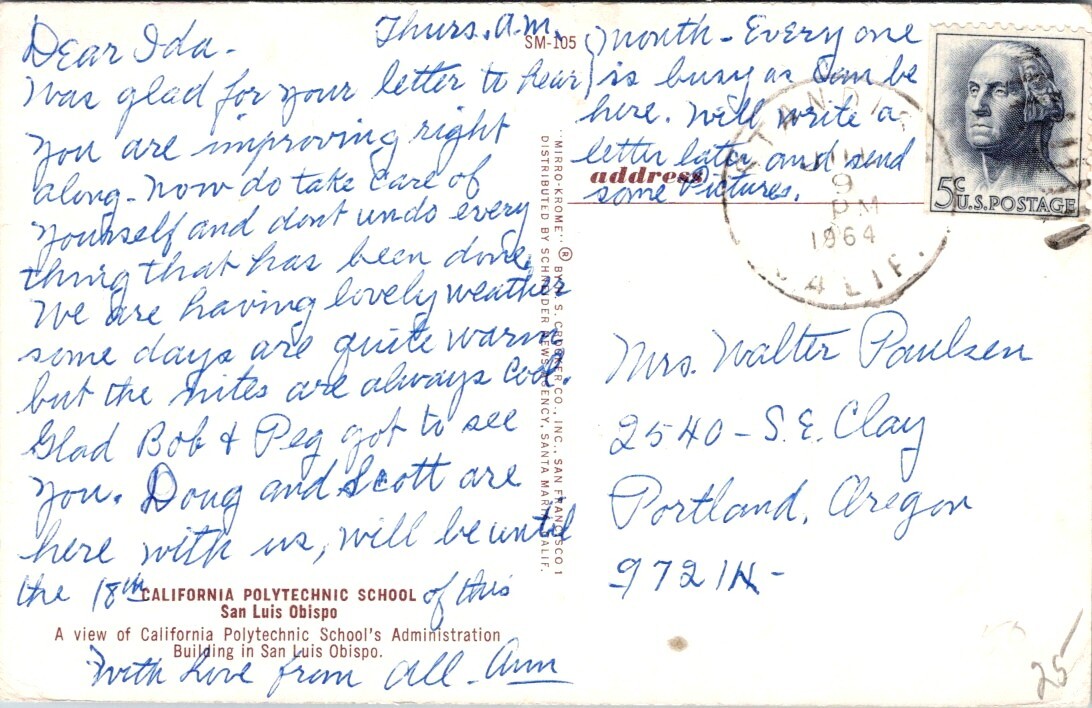 Thurs. a.m.
Dear Ida -
Was glad for your letter to hear
you are improving right
along - now do take care of
yourself and dont undo every
thing that has been done.
We are having lovely weather
some days are quite warm
but the nites are always cool.
Glad Bob & Peg got to see
you. Doug and Scott are
here with us, will be until
the 18th of this
month - Everyone
is busy as can be
here. Will write a
letter later and send
some Pictures.
With Love from all - Ann
CALIFORNIA POLYTECHNIC SCHOOL
San Luis Obispo
A view of California Polytechnic School's Administration
Building in San Luis Obispo.
SM-105
"MIRRO-KROME" ® BY H. S. CROCKER CO., INC., SAN FRANCISCO 1
DISTRIBUTED BY SCHNEIDER NEWS AGENCY, SANTA MARIA, CALIF.
address
9
PM
1964
CALIF.
5c
U.S. POSTAGE
Mrs. Walter Paulsen
2540 - S.E. Clay
Portland, Oregon
9721
25